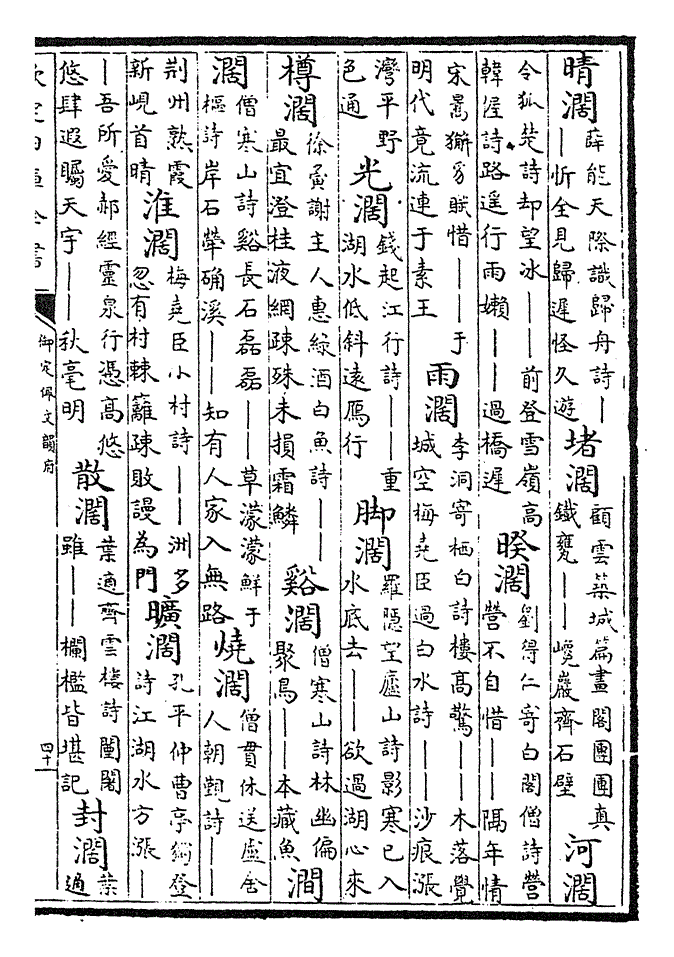 晴濶 薛能天際識歸舟詩｜｜忻全見歸遲怪久遊 堵濶 顧雲築城篇畫閣團團真鐵甕｜｜巉巖齊石壁 河濶
令狐楚詩却望冰｜｜前登雪嶺高韓偓詩路遥行雨嬾｜｜過橋遲 睽濶 劉得仁寄白閣僧詩營營不自惜｜｜隔年情
宋暠獬豸賦惜｜｜于明代竟流連于素王 雨濶 李洞寄栖白詩樓高驚｜｜木落覺城空梅堯臣過白水詩｜｜沙痕漲
灣平野色通 光濶 錢起江行詩｜｜重湖水低斜遠鴈行 脚濶 羅隱望廬山詩影寒已入水底去｜｜欲過湖心來
樽濶 徐夤謝主人惠綠酒白魚詩｜｜最宜澄桂液網疎殊未損霜鱗 谿濶 僧寒山詩林幽偏聚鳥｜｜本藏魚 澗
濶 僧寒山詩谿長石磊磊｜｜草濛濛鮮于樞詩岸石犖确溪｜｜知有人家入無路 燒濶 僧貫休送盧舍人朝覲詩｜｜
荆州熟霞新峴首晴 淮濶 梅堯臣小村詩｜｜洲多忽有村棘籬疎敗謾為門 曠濶 孔平仲曹亭獨登詩江湖水方漲｜
｜吾所愛郝經靈泉行憑高悠悠肆遐矚天宇｜｜秋毫明 散濶 葉適齊雲樓詩闉闍雖｜｜欄檻皆堪記 封濶 葉適
欽定四庫全書 御定佩文韻府 四十